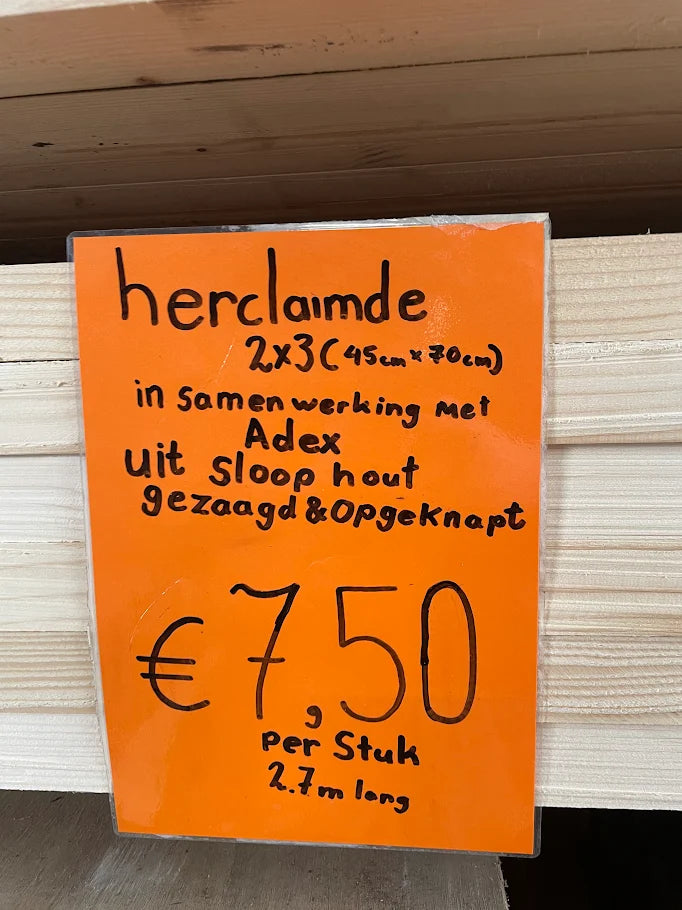 herclaimde
2x3 (45cm x 70cm)
in samenwerking met
Adex
uit sloop hout
gezaagd & opgeknapt
€7,50
per stuk
2.7m lang